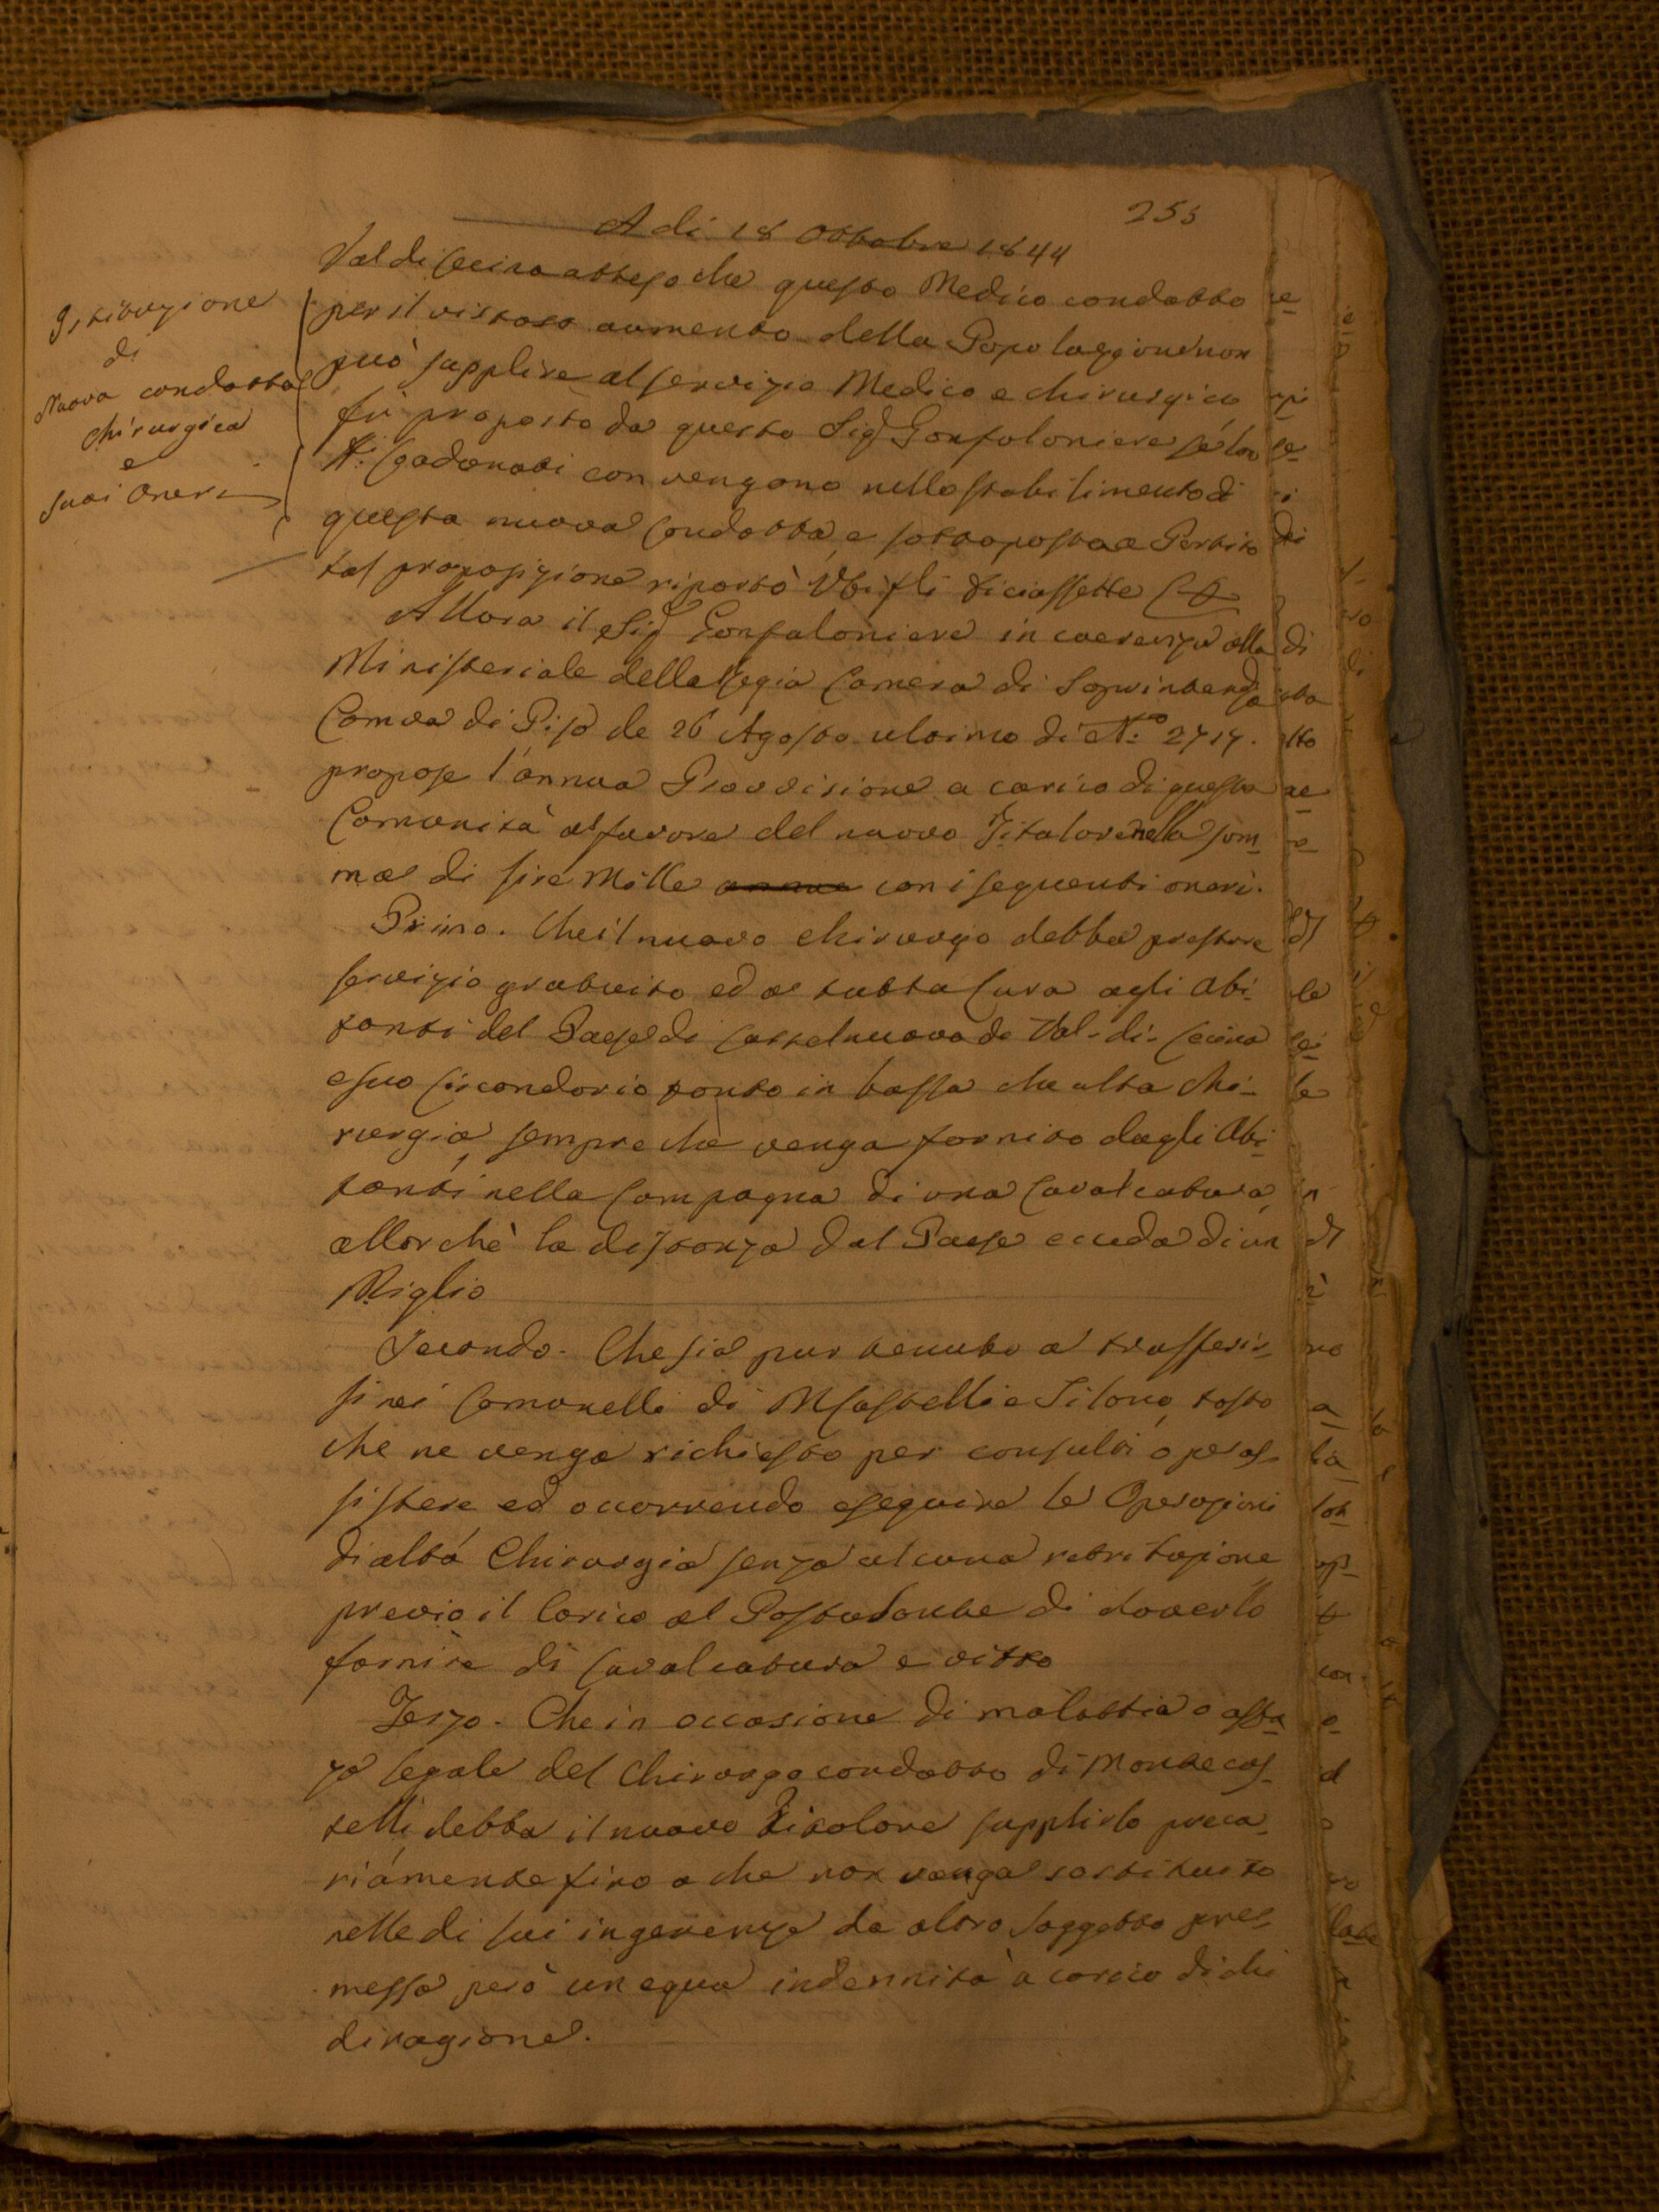 253
A di 18 Ottobre 1844
Istituzione
di
Nuova condotta
Chirurgica
e
suoi Oneri
Val di Cecina atteso che questo Medico condotto
per il vistoso aumento della Popolazzione non
può supplire al servizio Medico e chirurgico
fù proposto da questo Sig Gonfaloniere se loro
Adunati convengono nello stabilimento di
questa nuova Condotta, e sottoposta a Partito
tal proposizione riportò Voti fli diciassette
Allora il Sig Gonfaloniere in coerenza alla
Ministeriale della Regia Camera di Soprintenda
Comva di Pisa de 26 Agosto ultimo di No 2717.
propose l'annua Provvisione a carico di questa
Comunità a favore del nuovo Titolare nella som-
ma di lire Mille annue con i seguenti oneri.
Primo. Che il nuovo chirurgo debba prestare
servizio gratuito ed a tutta Cura agli Abi-
tanti del Paese di Castelnuovo di Val-di-Cecina
e suo Circondario tanto in bassa che alta Chi-
rurgia, sempre che venga fornito dagli Abi-
tanti nella Campagna di una Cavalcatura,
allorchè la distanza dal Paese eccda di un
Miglio
Secondo. Che sia pur tenuto a trasferir-
si nei Comunelli di MCastelli e Silano, tosto
che ne venga richiesto per consulti o per as-
sistere ed occorrendo eseguire le Operazioni
di alta Chirurgia senza alcuna retribuzione
previo il Carico al Postulante di doverlo
fornire di Cavalcatura e vitto
Terzo. Che in occasione di malattia o assen-
za legale del Chirurgo condotto di Montecas-
telli debba il nuovo Titolare supplirlo preca-
riamente fino a che non venga sostituito
nelle di lui ingerenze da altro Soggetto pre-
messa però un equa indennità a carico di chi
di ragione.